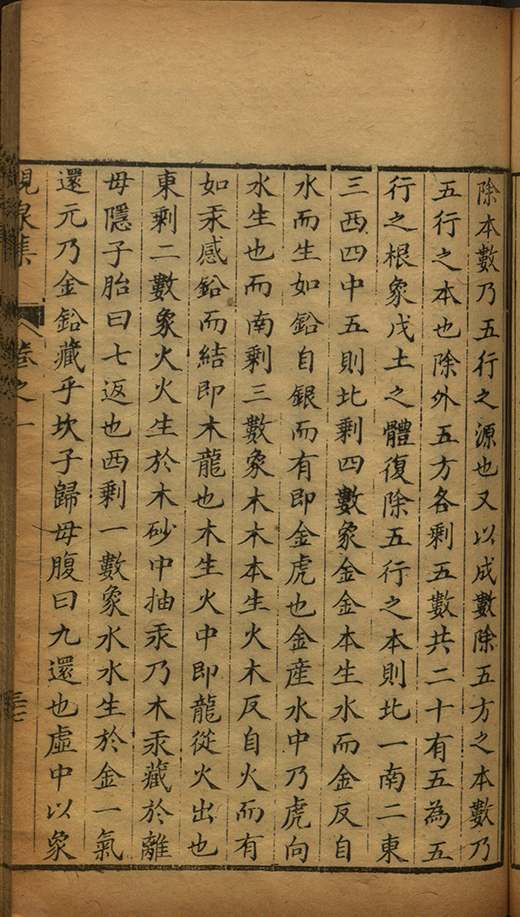 除本數乃五行之源也又以成數除五方之本數乃
五行之本也除外五方各剩五數共二十有五為五
行之根象戊土之體復除五行之本則北一南二東
三西四中五則北剩四數象金金本生水而金反自
水而生如鉛自銀而有即金虎也金産水中乃虎向
水生也而南剩三數象木木本生火木反自火而有
如汞感鉛而結即木龍也木生火中即龍從火出也
東剩二數象火火生於木砂中抽汞乃木汞藏於離
毋隱子胎曰七返也西剩一數象水水生於金一氣
還元乃金鉛藏乎坎子歸毋腹曰九還也虛中以象
卷之一